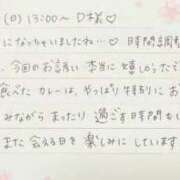 (日) 13:00〜 D様♡
になっちゃいましたね… 時間調整
今回のお誘い 本当に嬉しかったで
食べた カレーは、やっぱり 特別に お
みながら まったり 過ごす時間も
また 会える日を 楽しみにしています